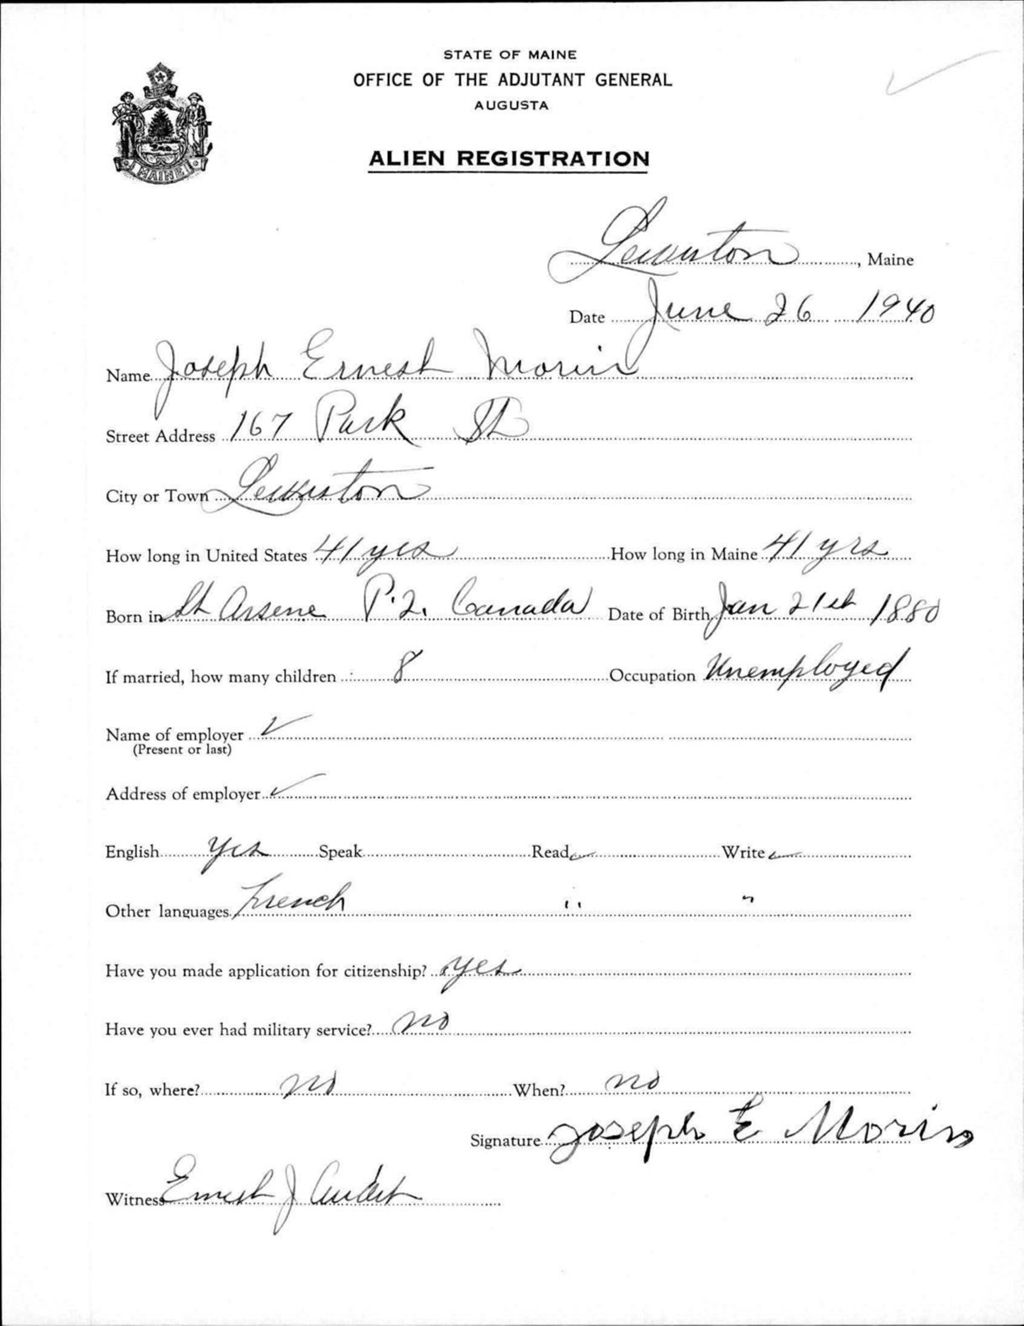 STATE OF MAINE
OFFICE OF THE ADJUTANT GENERAL
AUGUSTA
ALIEN REGISTRATION
MAINE
Lewiston, Maine
Date June 26 1940
Name Joseph Ernest Morin
Street Address 167 Park St
City or Town Lewiston
How long in United States 41 yrs How long in Maine 41 yrs
Born in St Arsene P.Q. Canada Date of Birth Jan 21st 1880
If married, how many children 8 Occupation Unemployed
Name of employer ✓
(Present or last)
Address of employer ✓
English yes Speak Read ✓ Write ✓
Other languages French " "
Have you made application for citizenship? yes
Have you ever had military service? no
If so, where? no When? no
Signature Joseph E Morin
Witness Ernest J Audet